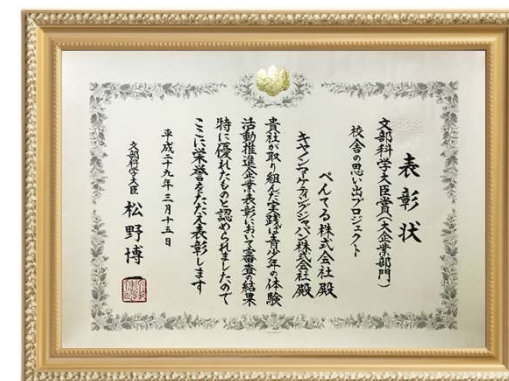 表彰状
文部科学大臣賞(大企業部門)
校舎の思い出プロジェクト
ぺんてる株式会社殿
キヤノンマーケティングジャパン株式会社殿
貴社が取り組んだ実践は青少年の体験
活動推進企業表彰において審査の結果
特に優れたものと認められましたので
ここに栄誉をたたえ表彰します
平成二十九年三月十五日
文部科学大臣 松野博